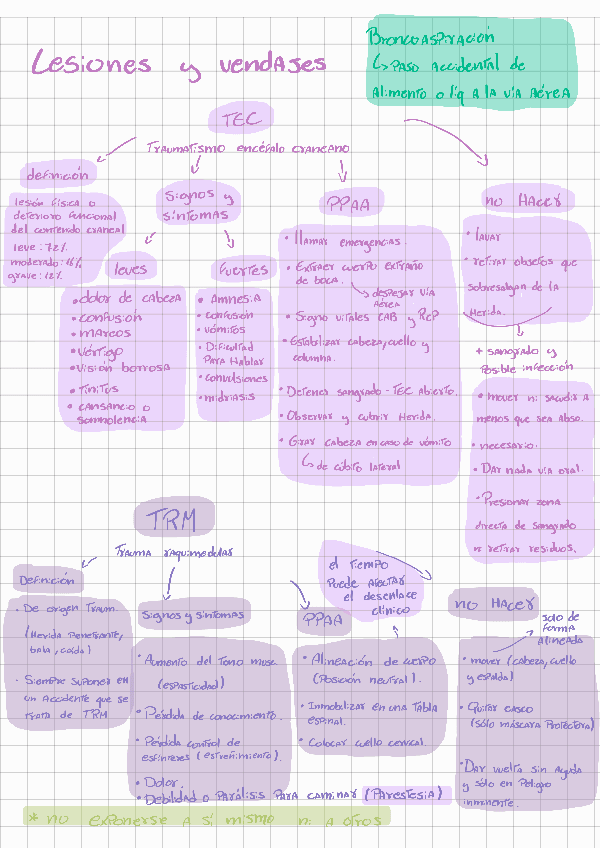 Lesiones y vendajes
Broncoaspiración
↳ Paso accidental de
alimento o líq a la vía aérea
TEC
Traumatismo encéfalo craneano
definición
lesión física o
deterioro funcional
del contenido craneal
leve: 72%
moderado: 16%
grave: 12%
Signos y
síntomas
leves
• dolor de cabeza
• confusión
• mareos
• vértigo
• Visión borrosa
• Tinitus
• cansancio o
somnolencia
fuertes
• Amnesia
• confusión
• vómitos
• Dificultad
Para Hablar
• convulsiones
• midriasis
PPAA
• llamar emergencias.
• Extraer cuerpo extraño
de boca.
↳ despejar vía
Aérea
• Signo vitales CAB y RCP
• Estabilizar cabeza, cuello y
columna.
• Detener sangrado - TEC Abierto.
• Observar y cubrir Herida.
• Girar cabeza en caso de vómito
↳ de cúbito lateral
no Hacer
• lavar
• retirar objetos que
sobresalgan de la
Herida.
+ sangrado y
Posible infección
• mover ni sacudir a
menos que sea abso.
necesario.
• Dar nada vía oral.
• Presionar zona
directa de sangrado
ni retirar residuos.
TRM
Trauma raquimedular
Definición
• De origen Traum.
(Herida Penetrante,
bala, caída)
• Siempre suponer en
un Accidente que se
trata de TRM
Signos y síntomas
• Aumento del Tono musc.
(espasticidad)
• Pérdida de conocimiento.
• Pérdida control de
esfínteres (estreñimiento)
• Dolor.
• Debilidad o Parálisis Para caminar (Parestesia)
el tiempo
Puede afectar
el desenlace
clínico
PPAA
• Alineación de cuerpo
(Posición neutral).
• Inmobilizar en una Tabla
espinal.
• Colocar cuello cervical.
no Hacer
solo de
forma
Alineada
• mover (cabeza, cuello
y espalda)
• Quitar casco
(sólo máscara Protectora)
• Dar vuelta sin Ayuda
y sólo en Peligro
inminente.
* no exponerse a sí mismo ni a otros